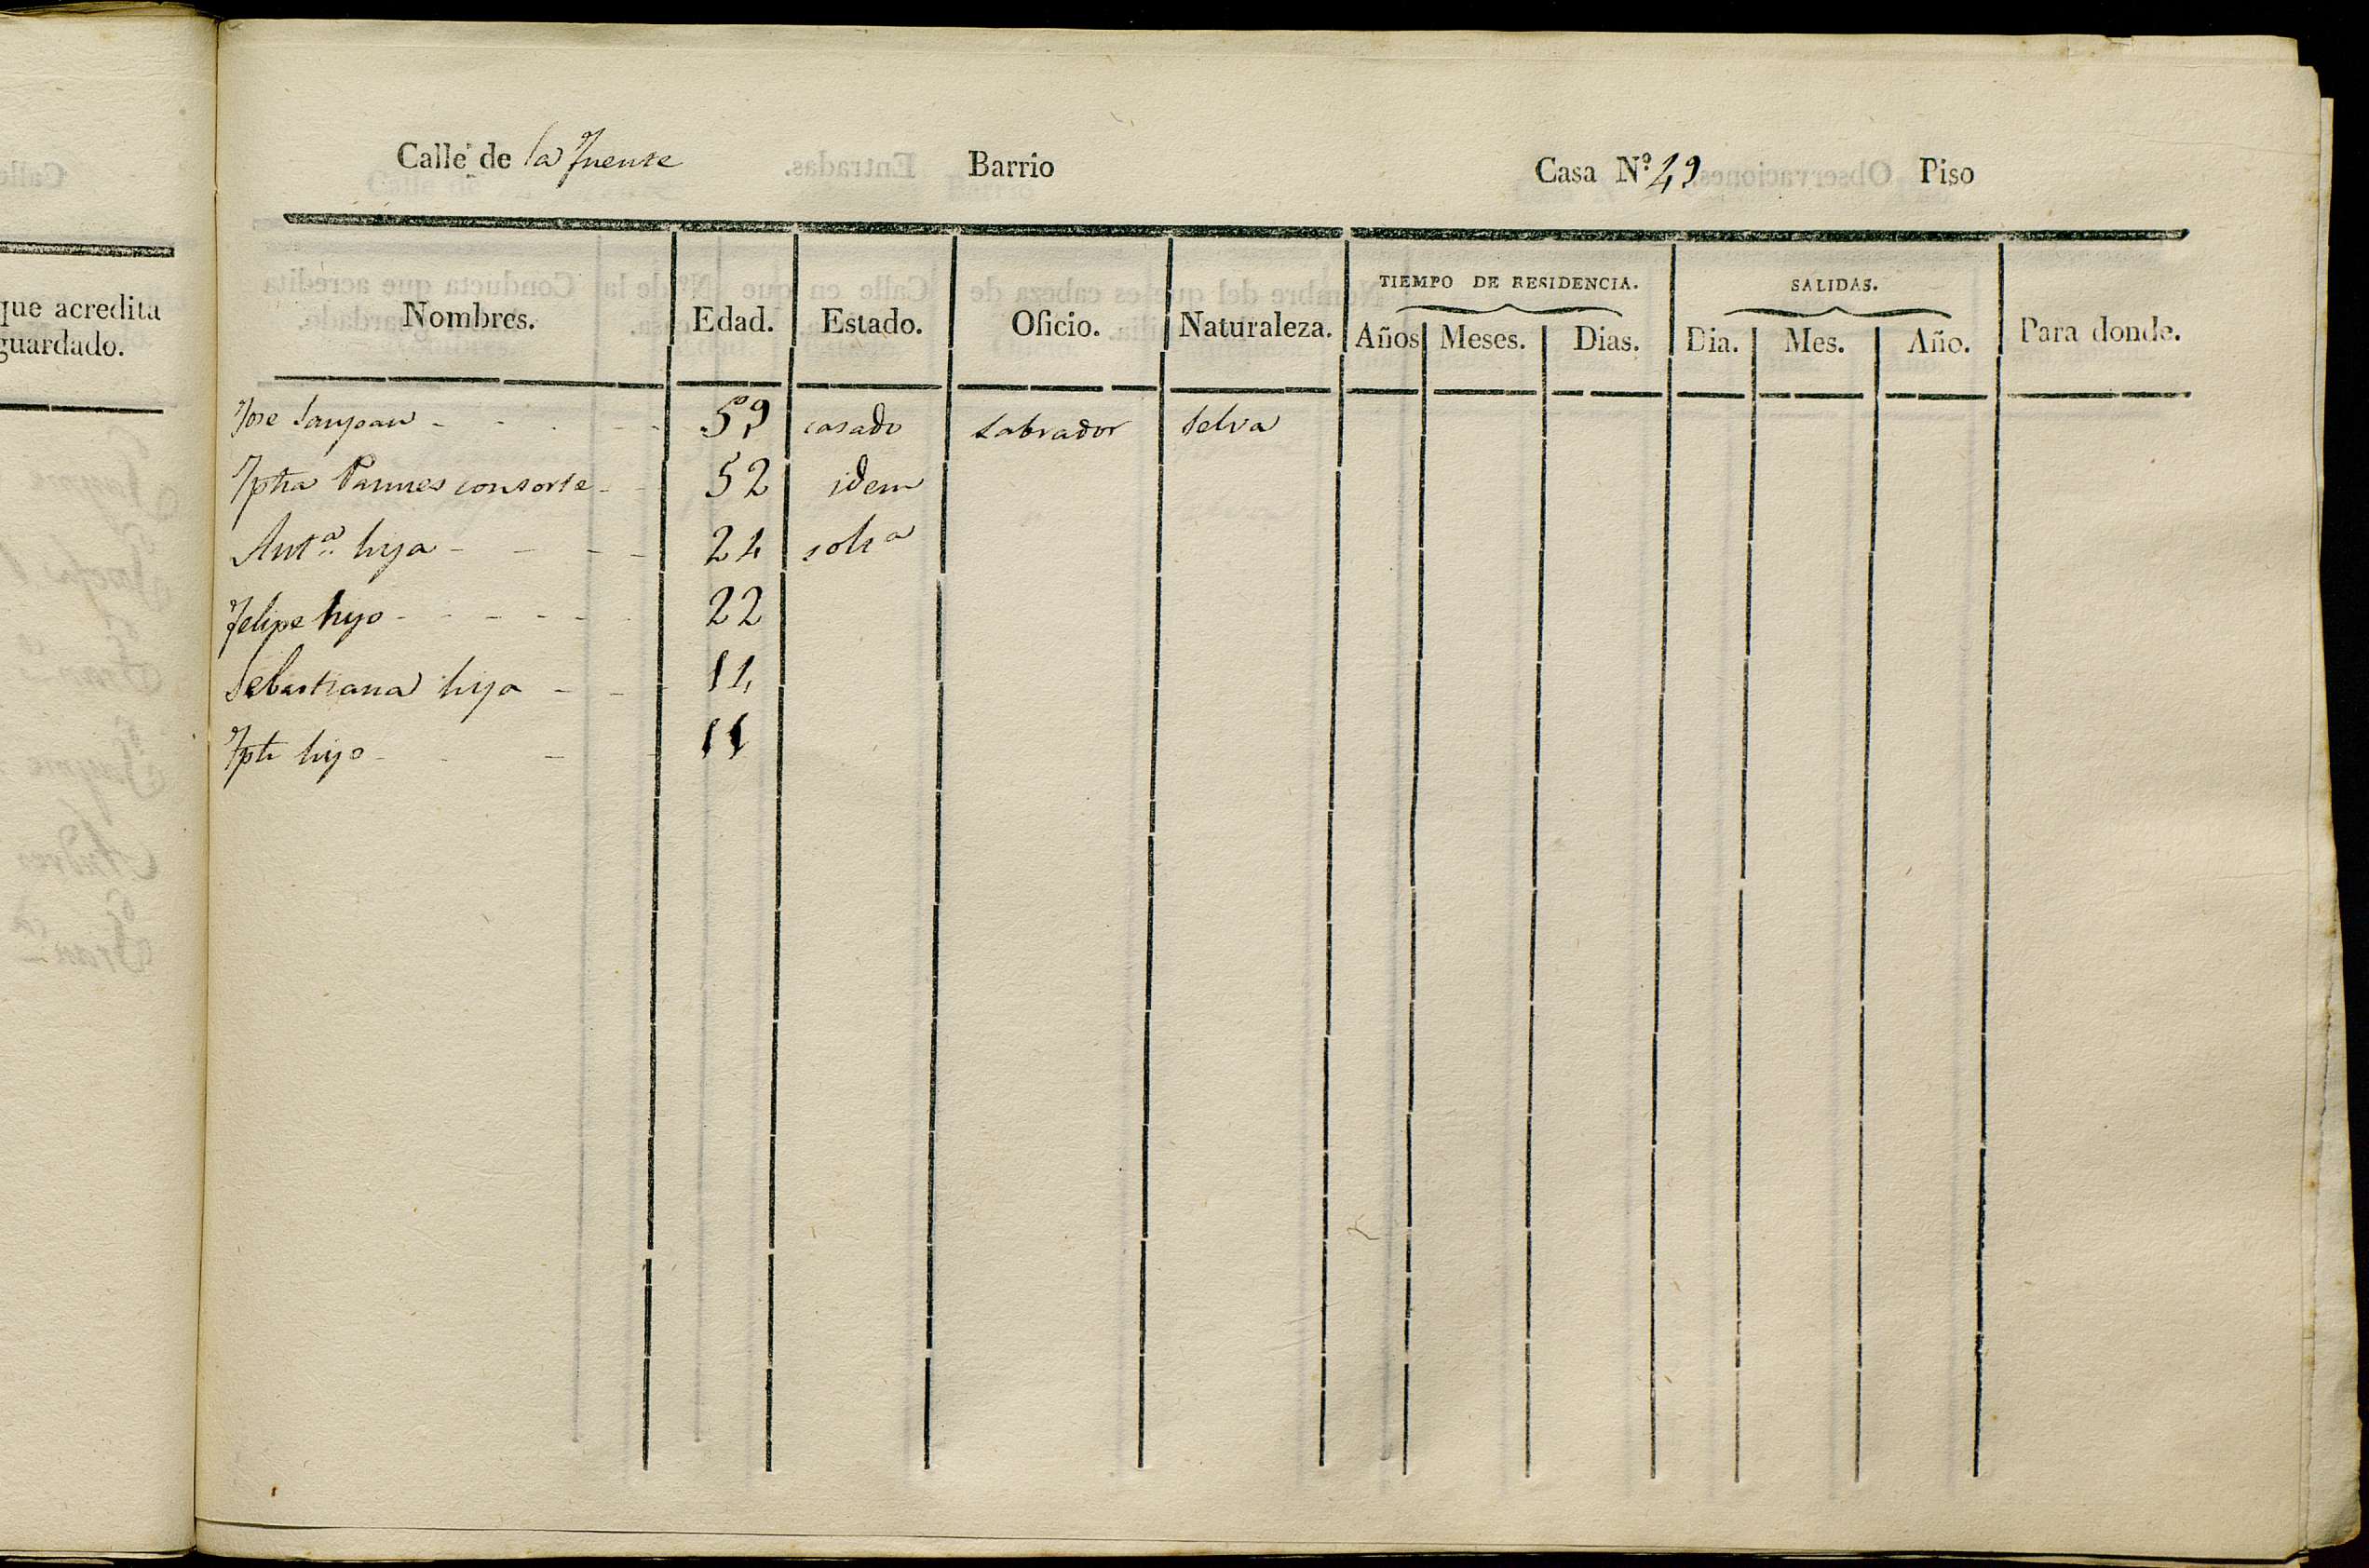 que acredita
guardado.
Calle de la Fuente Barrio Casa N.º 49 Piso
TIEMPO DE RESIDENCIA. SALIDAS.
Nombres. Edad. Estado. Oficio. Naturaleza. Años Meses. Dias. Dia. Mes. Año. Para donde.
Jose Sanjoan 59 casado Labrador Selva
Jpha consorte 52 idem
Antª hija 24 soltª
Felipe hijo 22
Sebastiana hija 14
Jph hijo 11